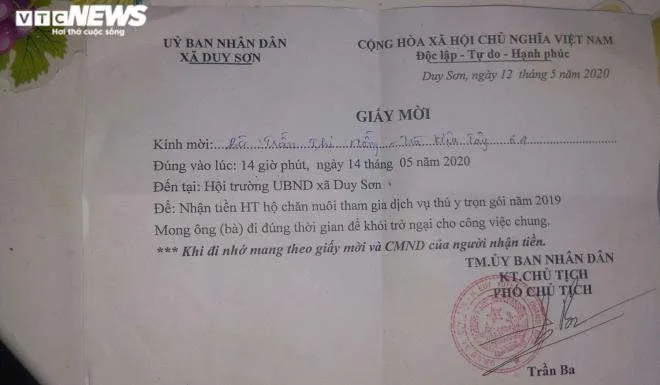 VTCNEWS
Hơi thở cuộc sống
UỶ BAN NHÂN DÂN
XÃ DUY SƠN
CỘNG HÒA XÃ HỘI CHỦ NGHĨA VIỆT NAM
Độc lập - Tự do - Hạnh phúc
Duy Sơn, ngày 12 tháng 5 năm 2020
GIẤY MỜI
Kính mời: Bà Trần Thị
Đúng vào lúc: 14 giờ phút, ngày 14 tháng 05 năm 2020
Đến tại: Hội trường UBND xã Duy Sơn
Đề: Nhận tiền HT hộ chăn nuôi tham gia dịch vụ thú y trọn gói năm 2019
Mong ông (bà) đi đúng thời gian để khỏi trở ngại cho công việc chung.
*** Khi đi nhớ mang theo giấy mời và CMND của người nhận tiền.
TM.ỦY BAN NHÂN DÂN
KT.CHỦ TỊCH
PHÓ CHỦ TỊCH
Trần Ba